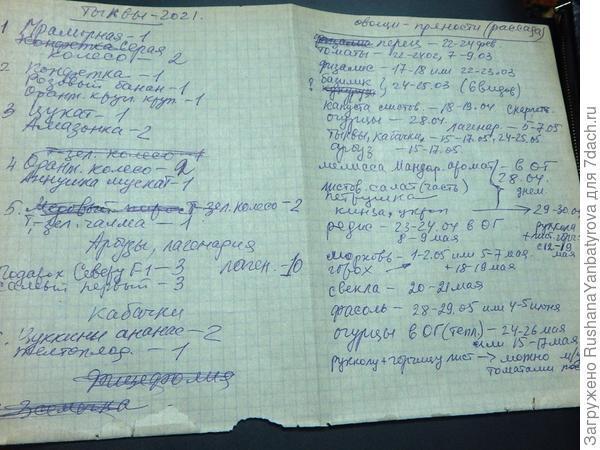 Тыквы-2021.
1 Мраморная-1
Конфетка Серая
Колесо-2
2 Конфетка-1
Розовый банан-1
Оранж. кругл. круп.-1
3 Цукат-1
Амазонка-2
Т-зел. колесо-1
4 Оранж. колесо-2
Аннушка мускат-1
5. Т-зел. колесо-2
Т-зел. чалма-1
Арбузы, лагенария
Подарок Северу F1-3 лаген.-10
самый первый-3
Кабачки
Цуккини ананас-2
Желтоплод.-1
Физифолия
овощи-пряности (рассада)
перец-22-24 фев
томаты-22-24.02, 7-9.03
физалис-17-18 или 22-23.03
? базилик 24-25.03 (6 видов)
кукуруза
капуста листов.-18-19.04
огурцы-28.04. лагенар.-5-7.05
тыквы, кабачки-15-17.05, 24-25.05
арбуз-15-17.05.
мелисса Мандар. аромат в ОГ
28.04.
днем
листов. салат (часть)
петрушка
кинза, укроп → 29-30.04
редис-23-24.04 в ОГ
8-9 мая
руккола
+лист. горч.
морковь-1-2.05 или 5-7 мая.
горох → +18-19 мая
сев-19
мая
свекла-20-21 мая
фасоль-28-29.05 или 4-5 июня
огурцы в ОГ (тепл.)-24-26 мая
или 15-17 мая
рукколу+горчицу лист → можно м/у
томатами пос
Загружено RushanaYanbatyrova для 7dach.ru